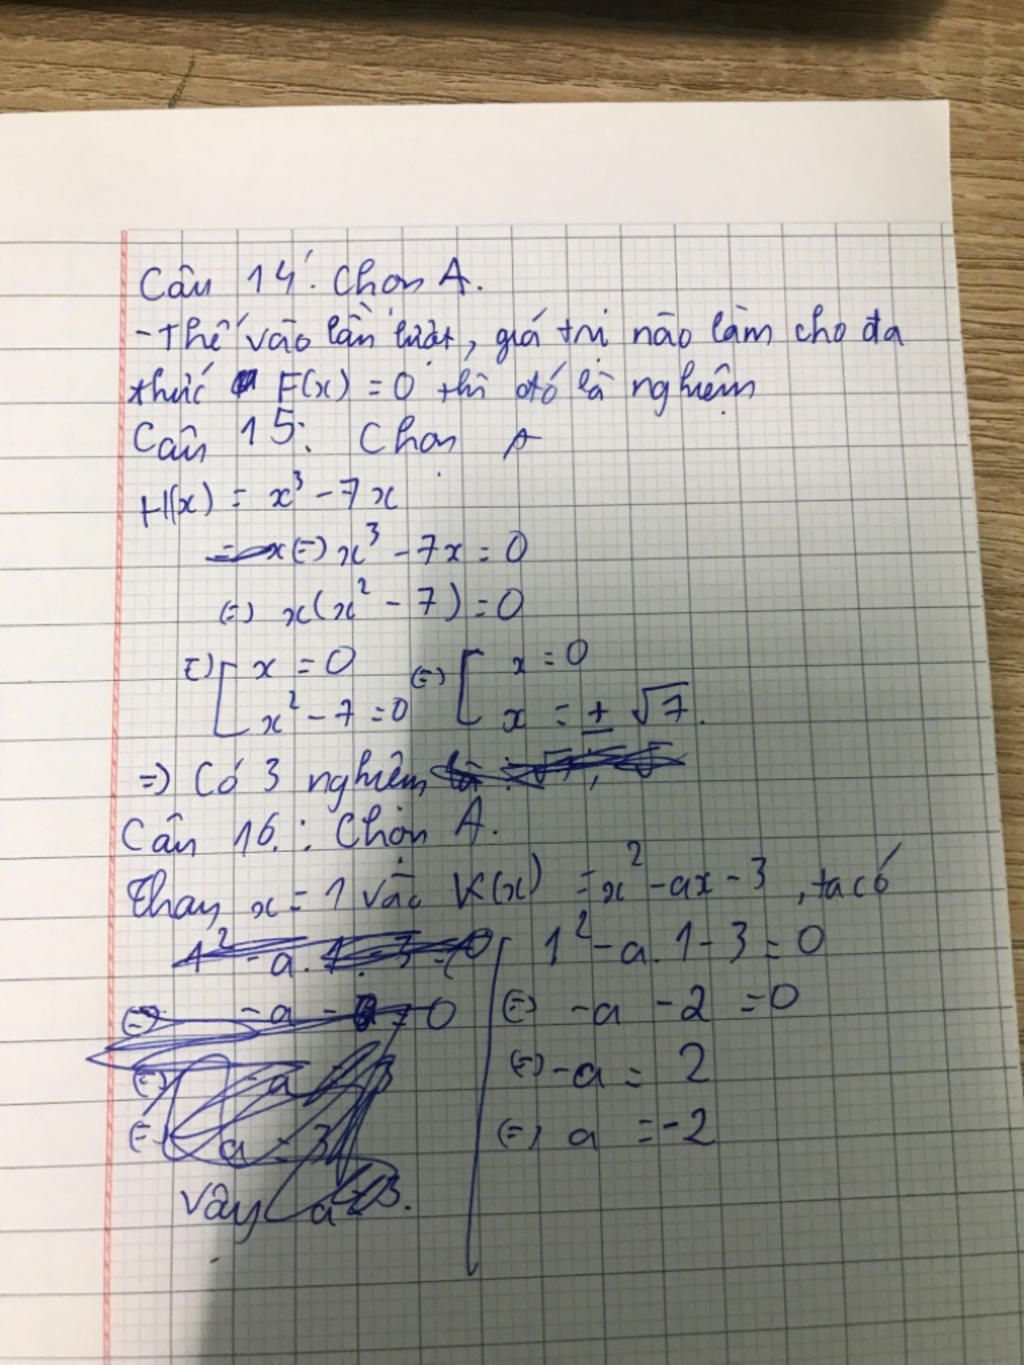 Câu 14: Chọn A.
- Thế vào lần lượt, giá trị nào làm cho đa
thức F(x) = 0 thì đó là nghiệm
Câu 15: Chọn A
H(x) = x³ - 7x
(=) x³ - 7x = 0
(=) x(x² - 7) = 0
(=) [ x = 0 (=) [ x = 0
x² - 7 = 0 x = ± √7.
=) Có 3 nghiệm
Câu 16: Chọn A.
Thay x = 1 vào K(x) = x² - ax - 3, ta có
1² - a.1 - 3 = 0
(=) -a - 2 = 0
(=) -a = 2
(=) a = -2
Vậy